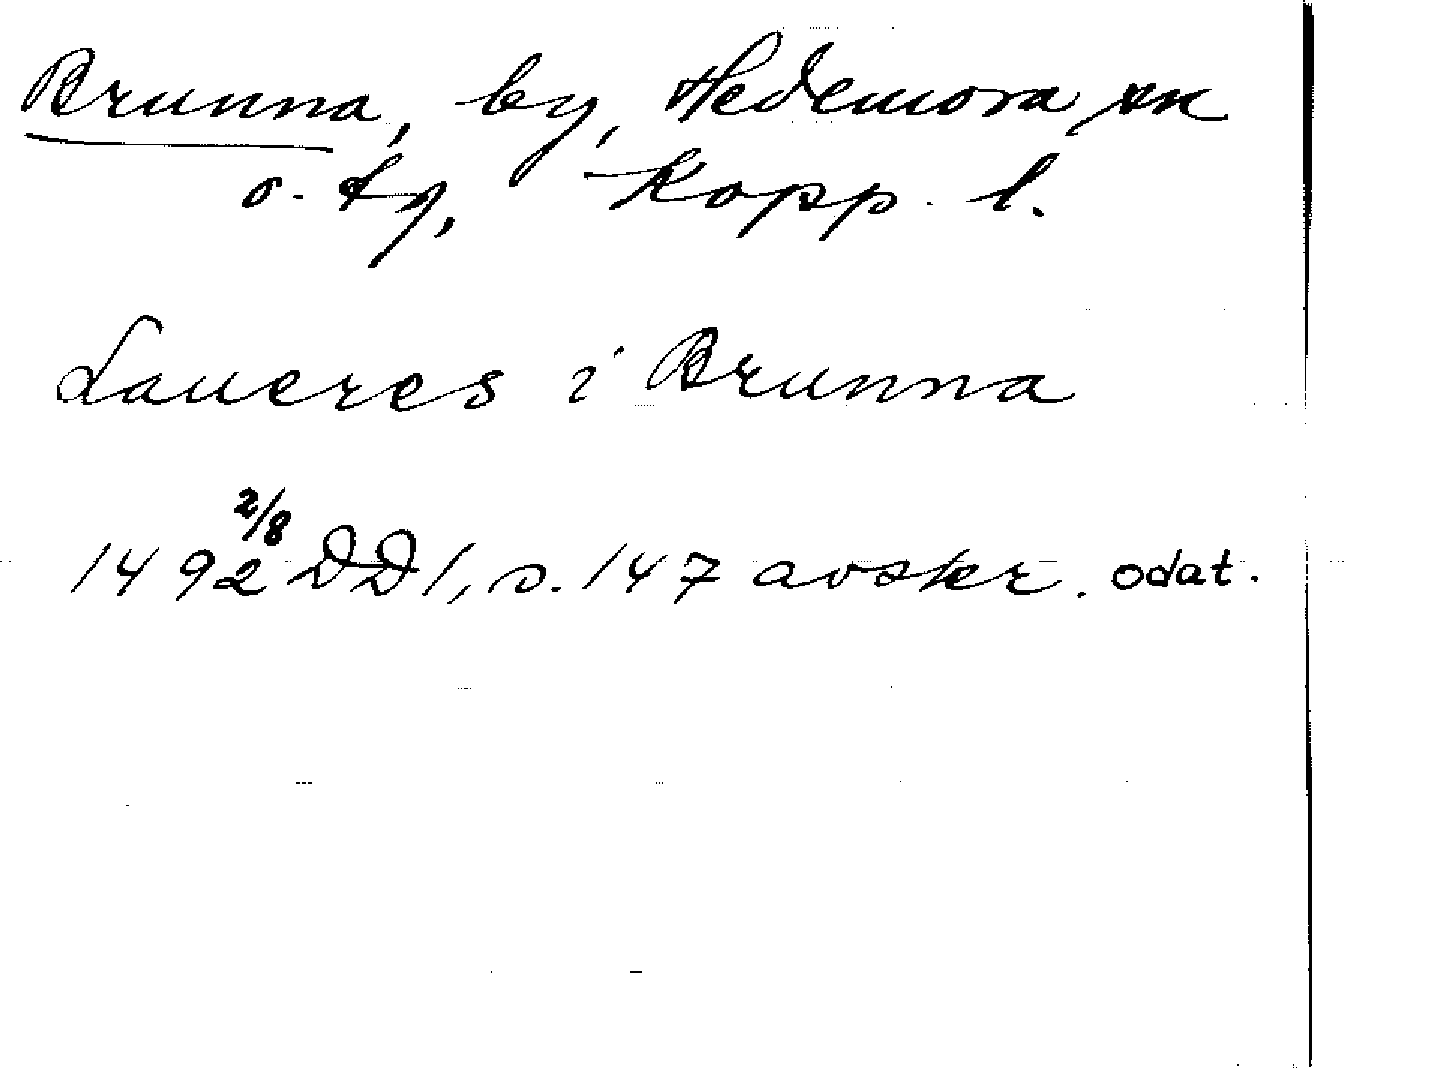 Brunna, by, Hedemora sn
o. tg, Kopp. l.
Laueres i Brunna
1492 2/8 DD1, s. 147 avskr. odat.